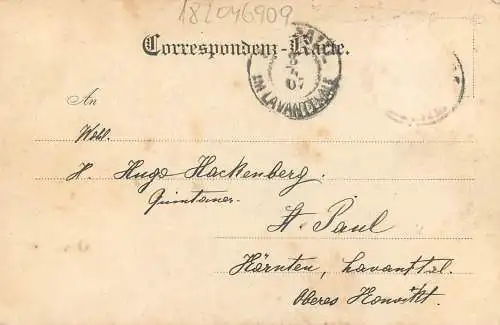 182046909
Correspondenz-Karte.
IM LAVANTTHALE
8 7 07
An
Wohl.
H. Hugo Hackenberg.
Quintaner.
St. Paul
Kärnten, Lavanttal.
Oberes Konvikt.